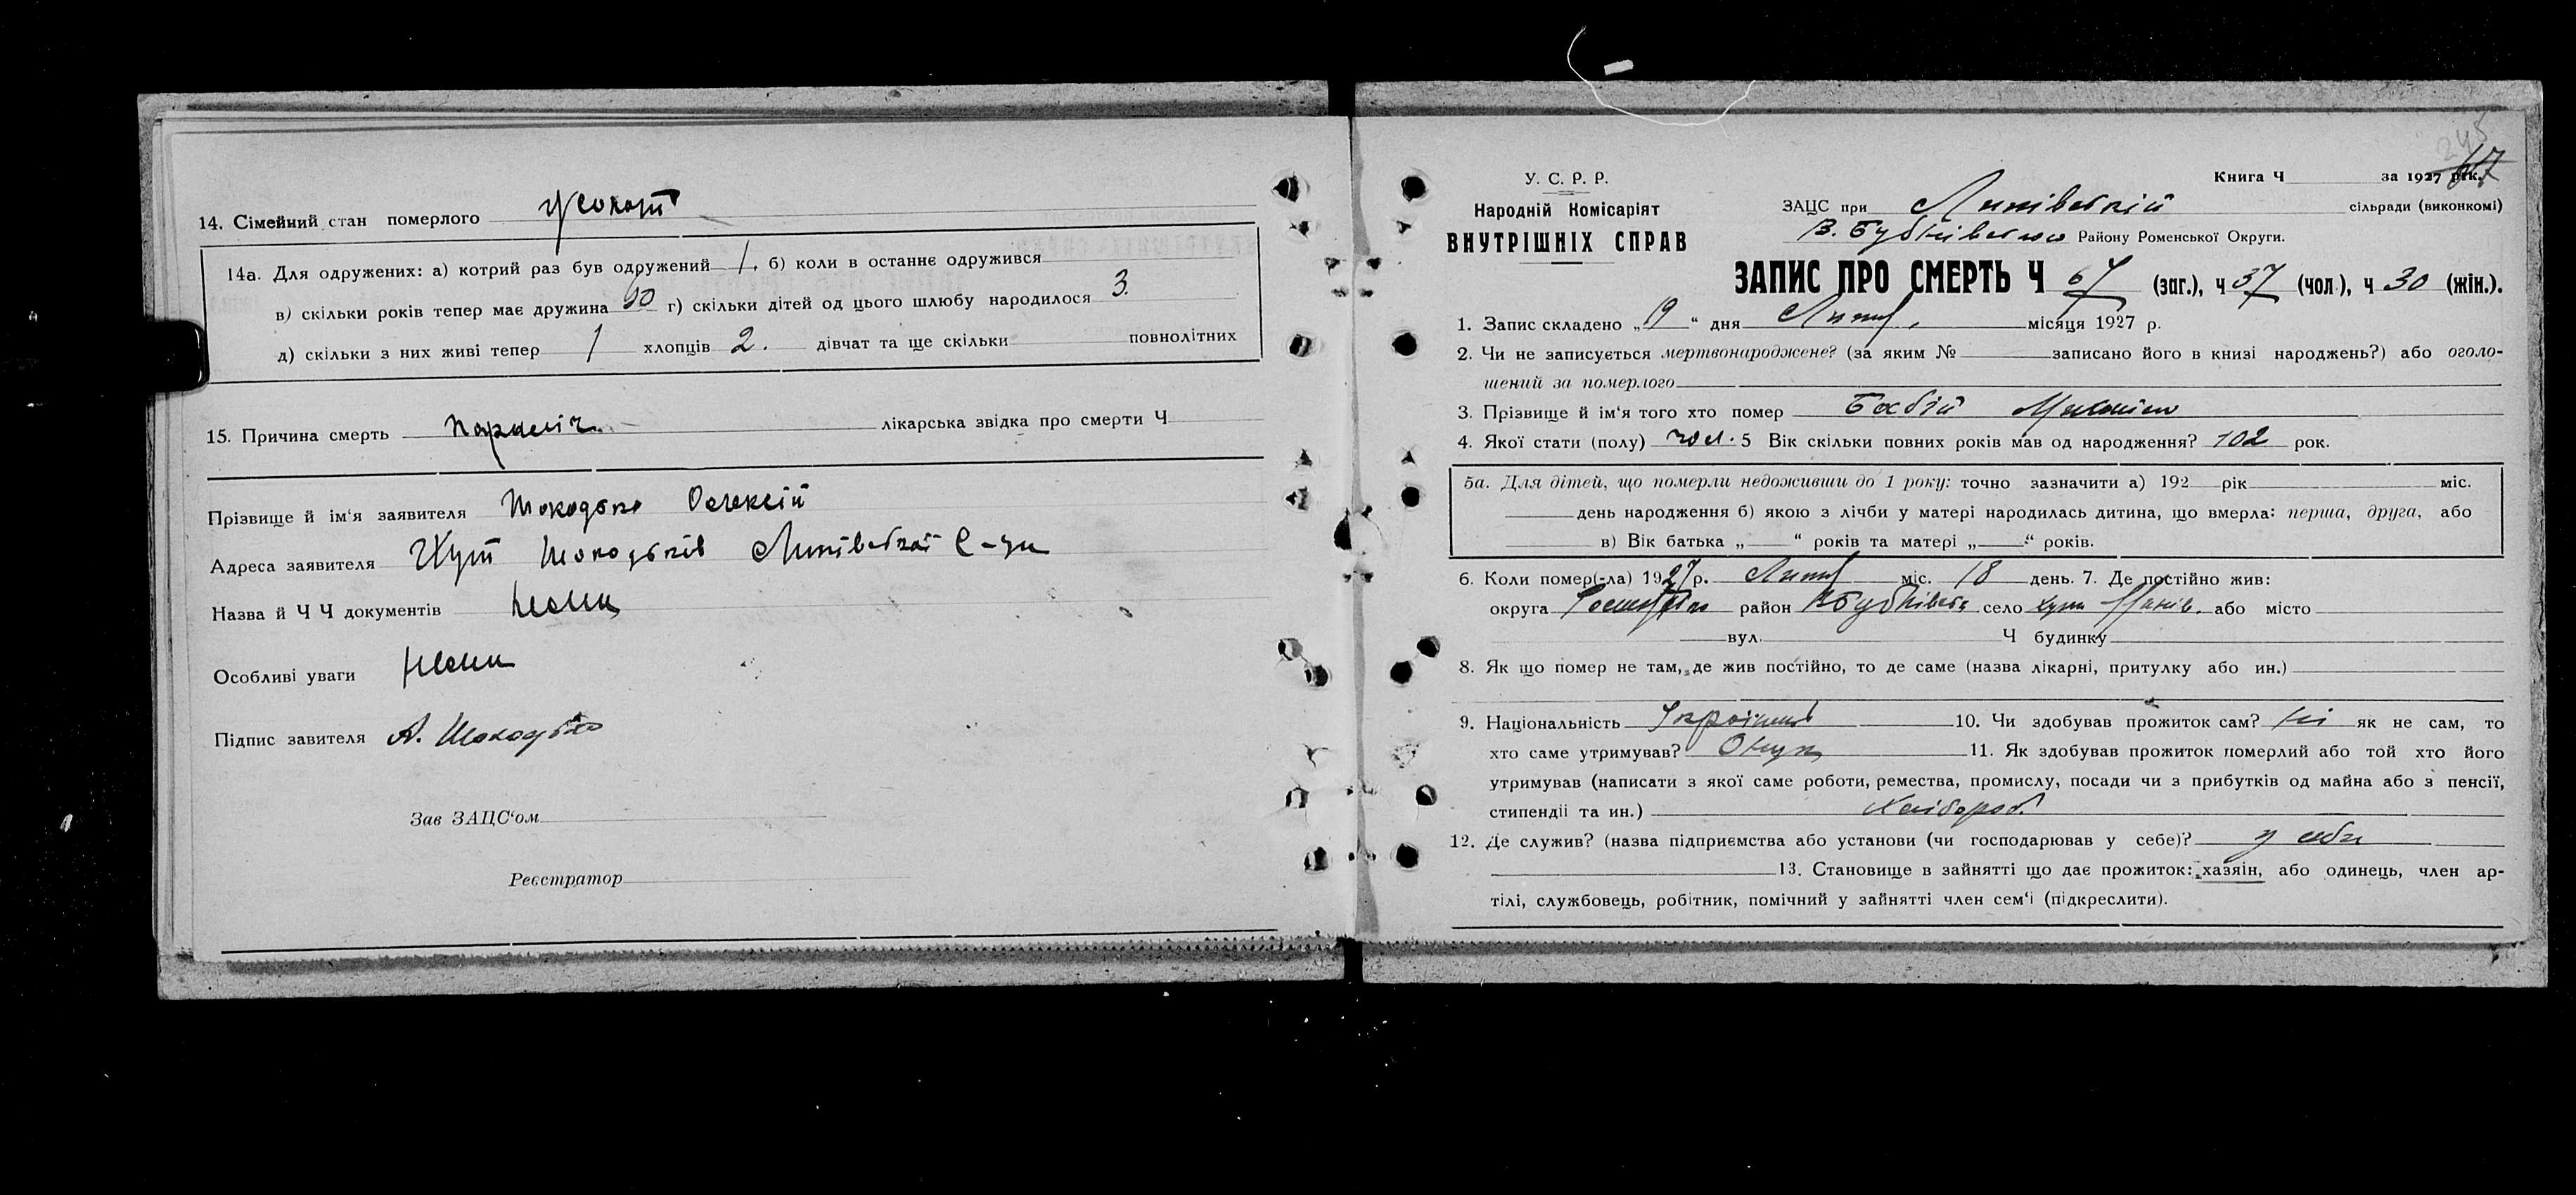 14. Сімейний стан померлого жонат
14а. Для одружених: а) котрий раз був одружений 1, б) коли в останнє одружився
в) скільки років тепер має дружина г) скільки дітей од цього шлюбу народилося 3.
д) скільки з них живі тепер 1 хлопців 2. дівчат та ще скільки повнолітних
15. Причина смерть параліч лікарська звідка про смерти Ч
Прізвище й ім'я заявителя Шокодько Олексій
Адреса заявителя Хут Шокодьків Липівської С-ди
Назва й Ч Ч документів нема
Особливі уваги нема
Підпис завителя А. Шокодько
Зав ЗАЦС'ом
Реєстратор
245
67
У. С. Р. Р.
Народній Комісаріят
ВНУТРІШНІХ СПРАВ
Книга Ч за 1927 рік.
ЗАЦС при Липівській сільради (виконкомі)
В. Бубнівського Району Роменської Округи.
ЗАПИС ПРО СМЕРТЬ Ч 67 (заг.), ч 37 (чол), ч 30 (жін.).
1. Запис складено „19“ дня Липн, місяця 1927 р.
2. Чи не записується мертвонароджене? (за яким № записано його в книзі народжень?) або оголо-
шений за померлого
3. Прізвище й ім'я того хто помер
4. Якої стати (полу) чол. 5 Вік скільки повних років мав од народження? 102 рок.
5а. Для дітей, що померли недоживши до 1 року: точно зазначити а) 192 рік міс.
день народження б) якою з лічби у матері народилась дитина, що вмерла: перша, друга, або
в) Вік батька „ “ років та матері „ “ років.
6. Коли помер(-ла) 1927р. Липн міс. 18 день. 7. Де постійно жив:
округа район село хут або місто
вул. Ч будинку
8. Як що помер не там, де жив постійно, то де саме (назва лікарні, притулку або ин.)
9. Національність Українець 10. Чи здобував прожиток сам? ні як не сам, то
хто саме утримував? Онук 11. Як здобував прожиток померлий або той хто його
утримував (написати з якої саме роботи, ремества, промислу, посади чи з прибутків од майна або з пенсії,
стипендії та ин.) Хлібороб.
12. Де служив? (назва підприємства або установи (чи господарював у себе)? у себе
13. Становище в зайнятті що дає прожиток: хазяін, або одинець, член ар-
тілі, службовець, робітник, помічний у зайнятті член сем'ї (підкреслити).